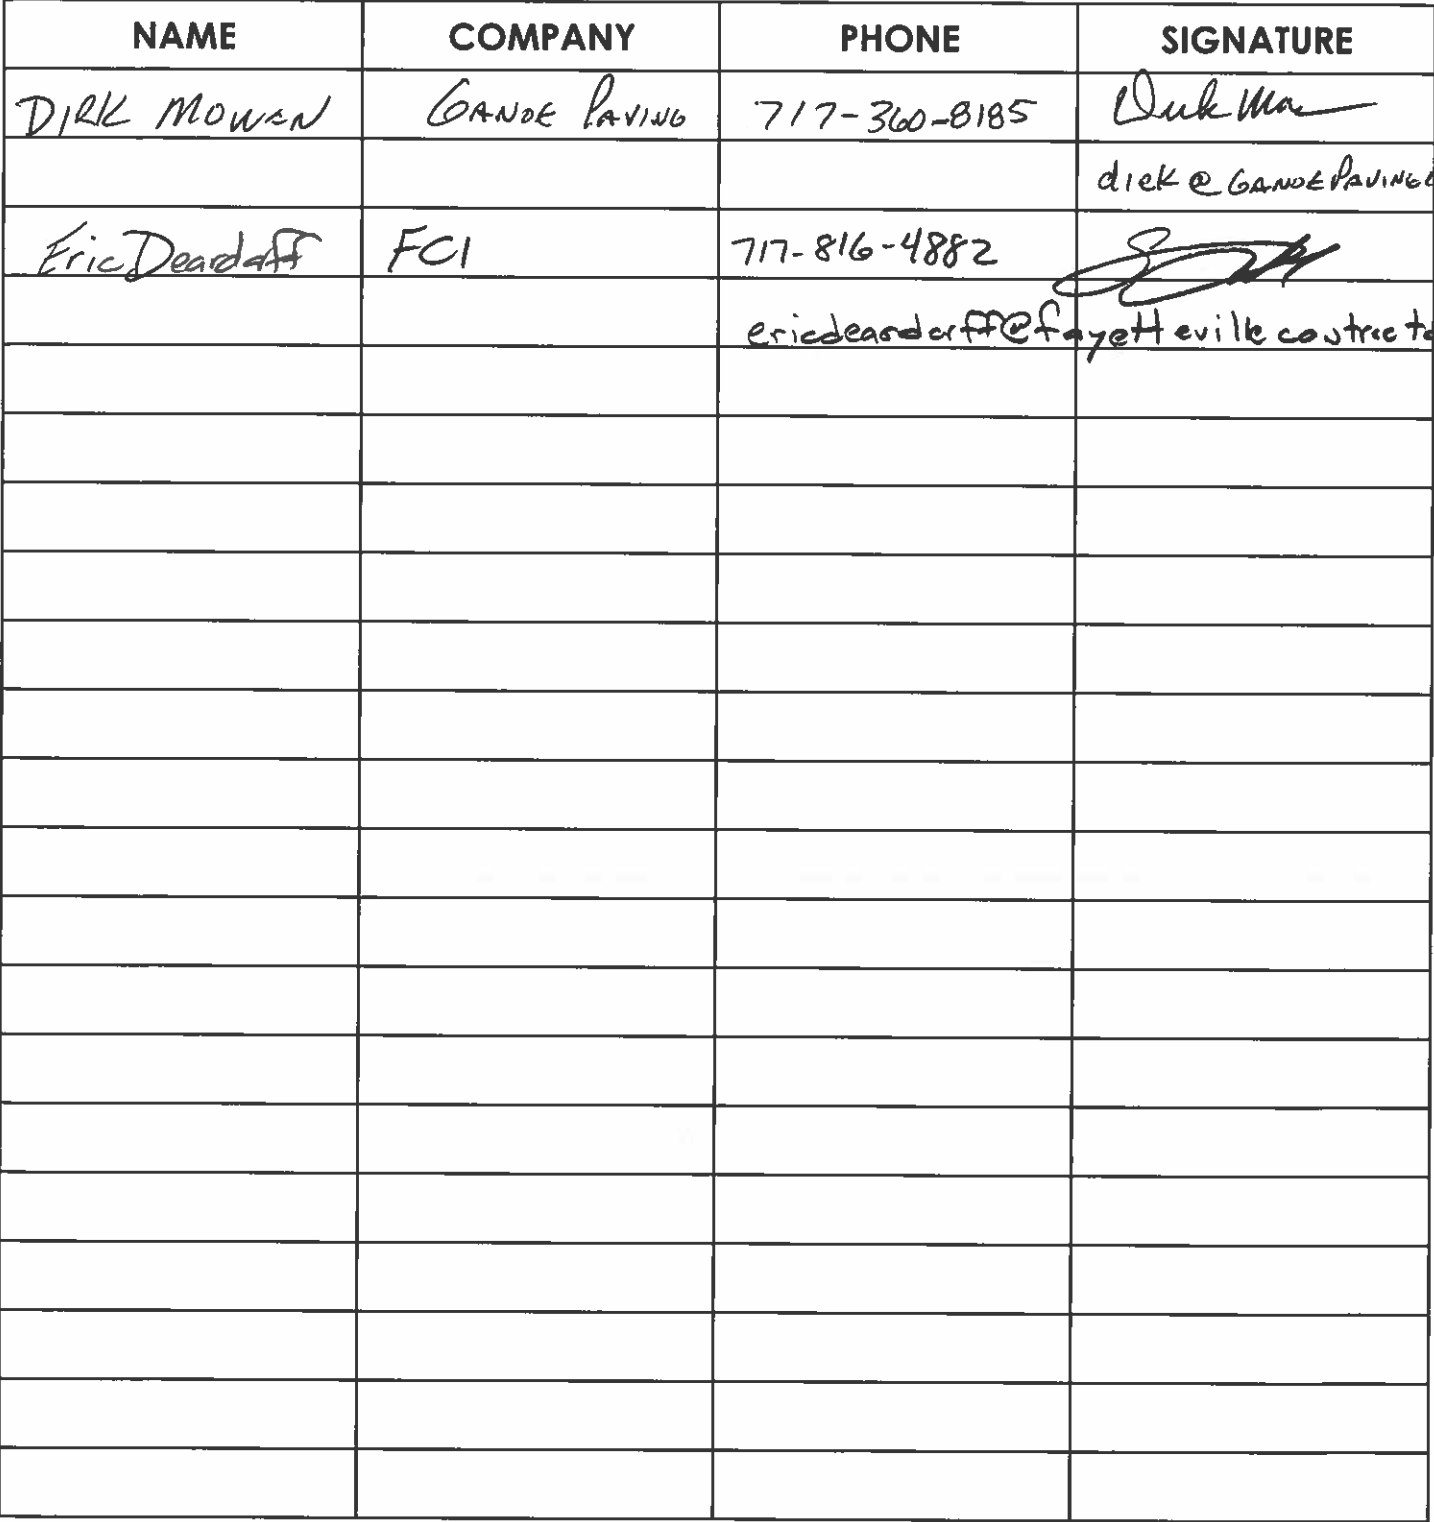 NAME COMPANY PHONE SIGNATURE
DIRK MOWEN GANOE PAVING 717-360-8185 Dirk Mo
dirk@GANOEPAVING
Eric Deardorff FCI 717-816-4882
ericdeardorff@fayettevillecontracto